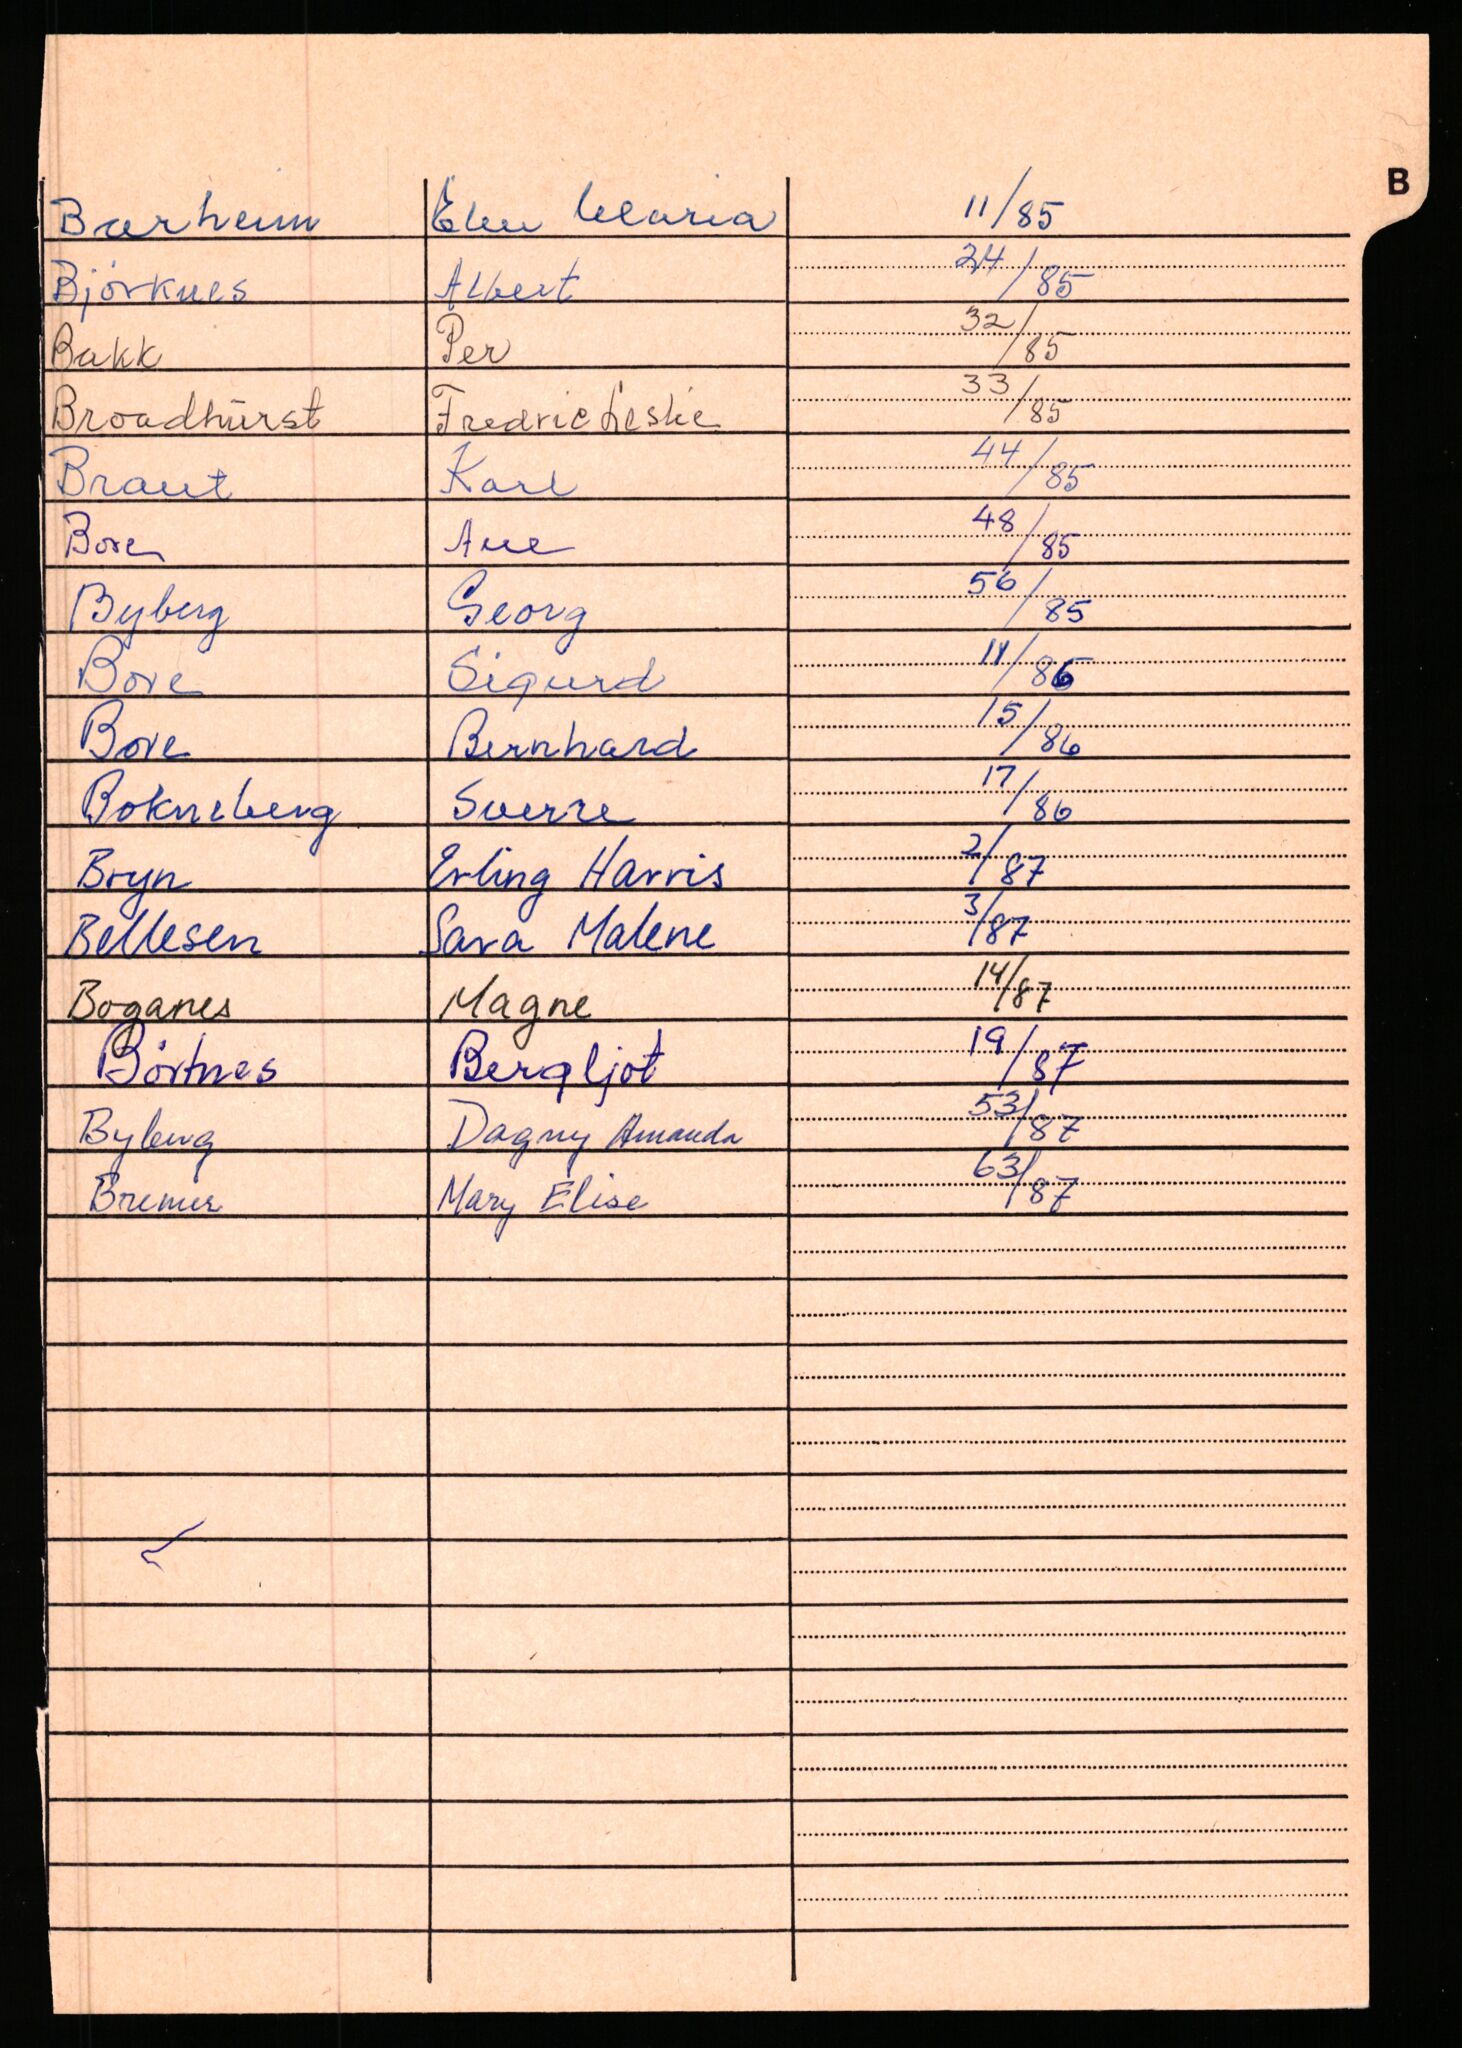 B
Bærheim Elen Maria 11/85
Björknes Albert 24/85
Bakk Per 32/85
Broadhurst Fredric Leslie 33/85
Braut Karl 44/85
Bore Ane 48/85
Byberg Georg 56/85
Bore Sigurd 11/86
Bore Bernhard 15/86
Bokneberg Sverre 17/86
Bryn Erling Harris 2/87
Bellesen Sara Malene 3/87
Boganes Magne 14/87
Börtnes Bergljot 19/87
Byberg Dagny Amanda 53/87
Bremer Mary Elise 63/87